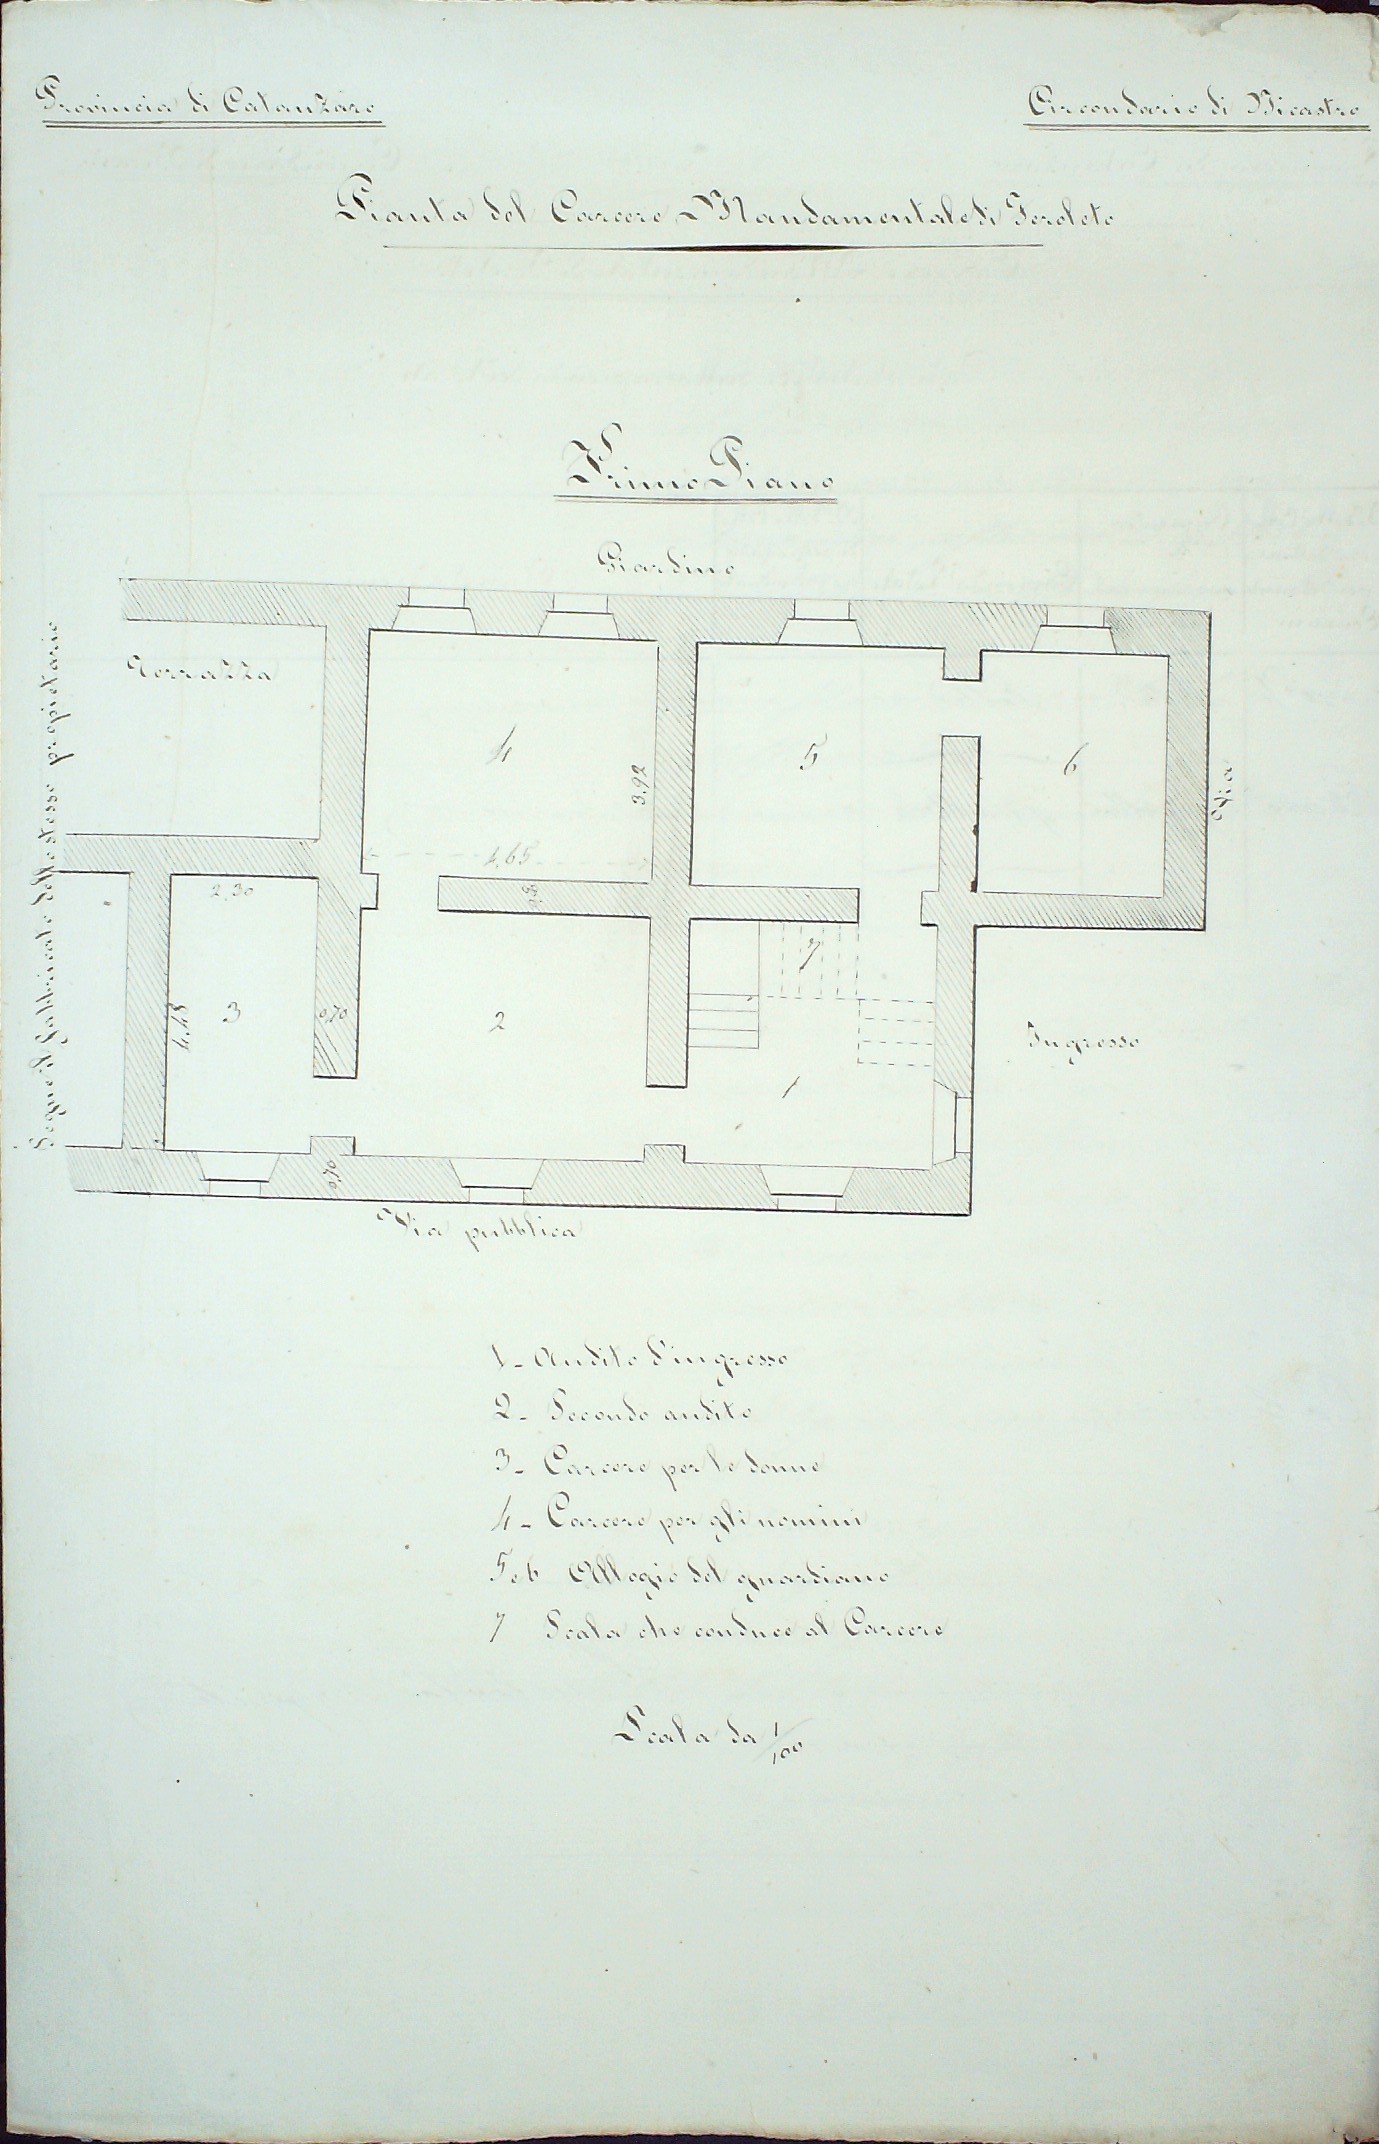 Provincia di Catanzaro
Circondario di Nicastro
Pianta del Carcere Mandamentale di Feroleto
Primo Piano
Giardino
Segue il fabbricato dello stesso propietario
Terrazza
4
3.92
4.65
5
6
Via
2,30
3
4.45
0,70
2
7
1
Ingresso
0,70
Via pubblica
1- Andito d'ingresso
2- Secondo andito
3- Carcere per le donne
4- Carcere per gli uomini
5 e 6 Allogio del guardiano
7 Scala che conduce al Carcere
Scala da 1/100